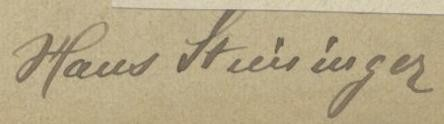 Hans Steininger